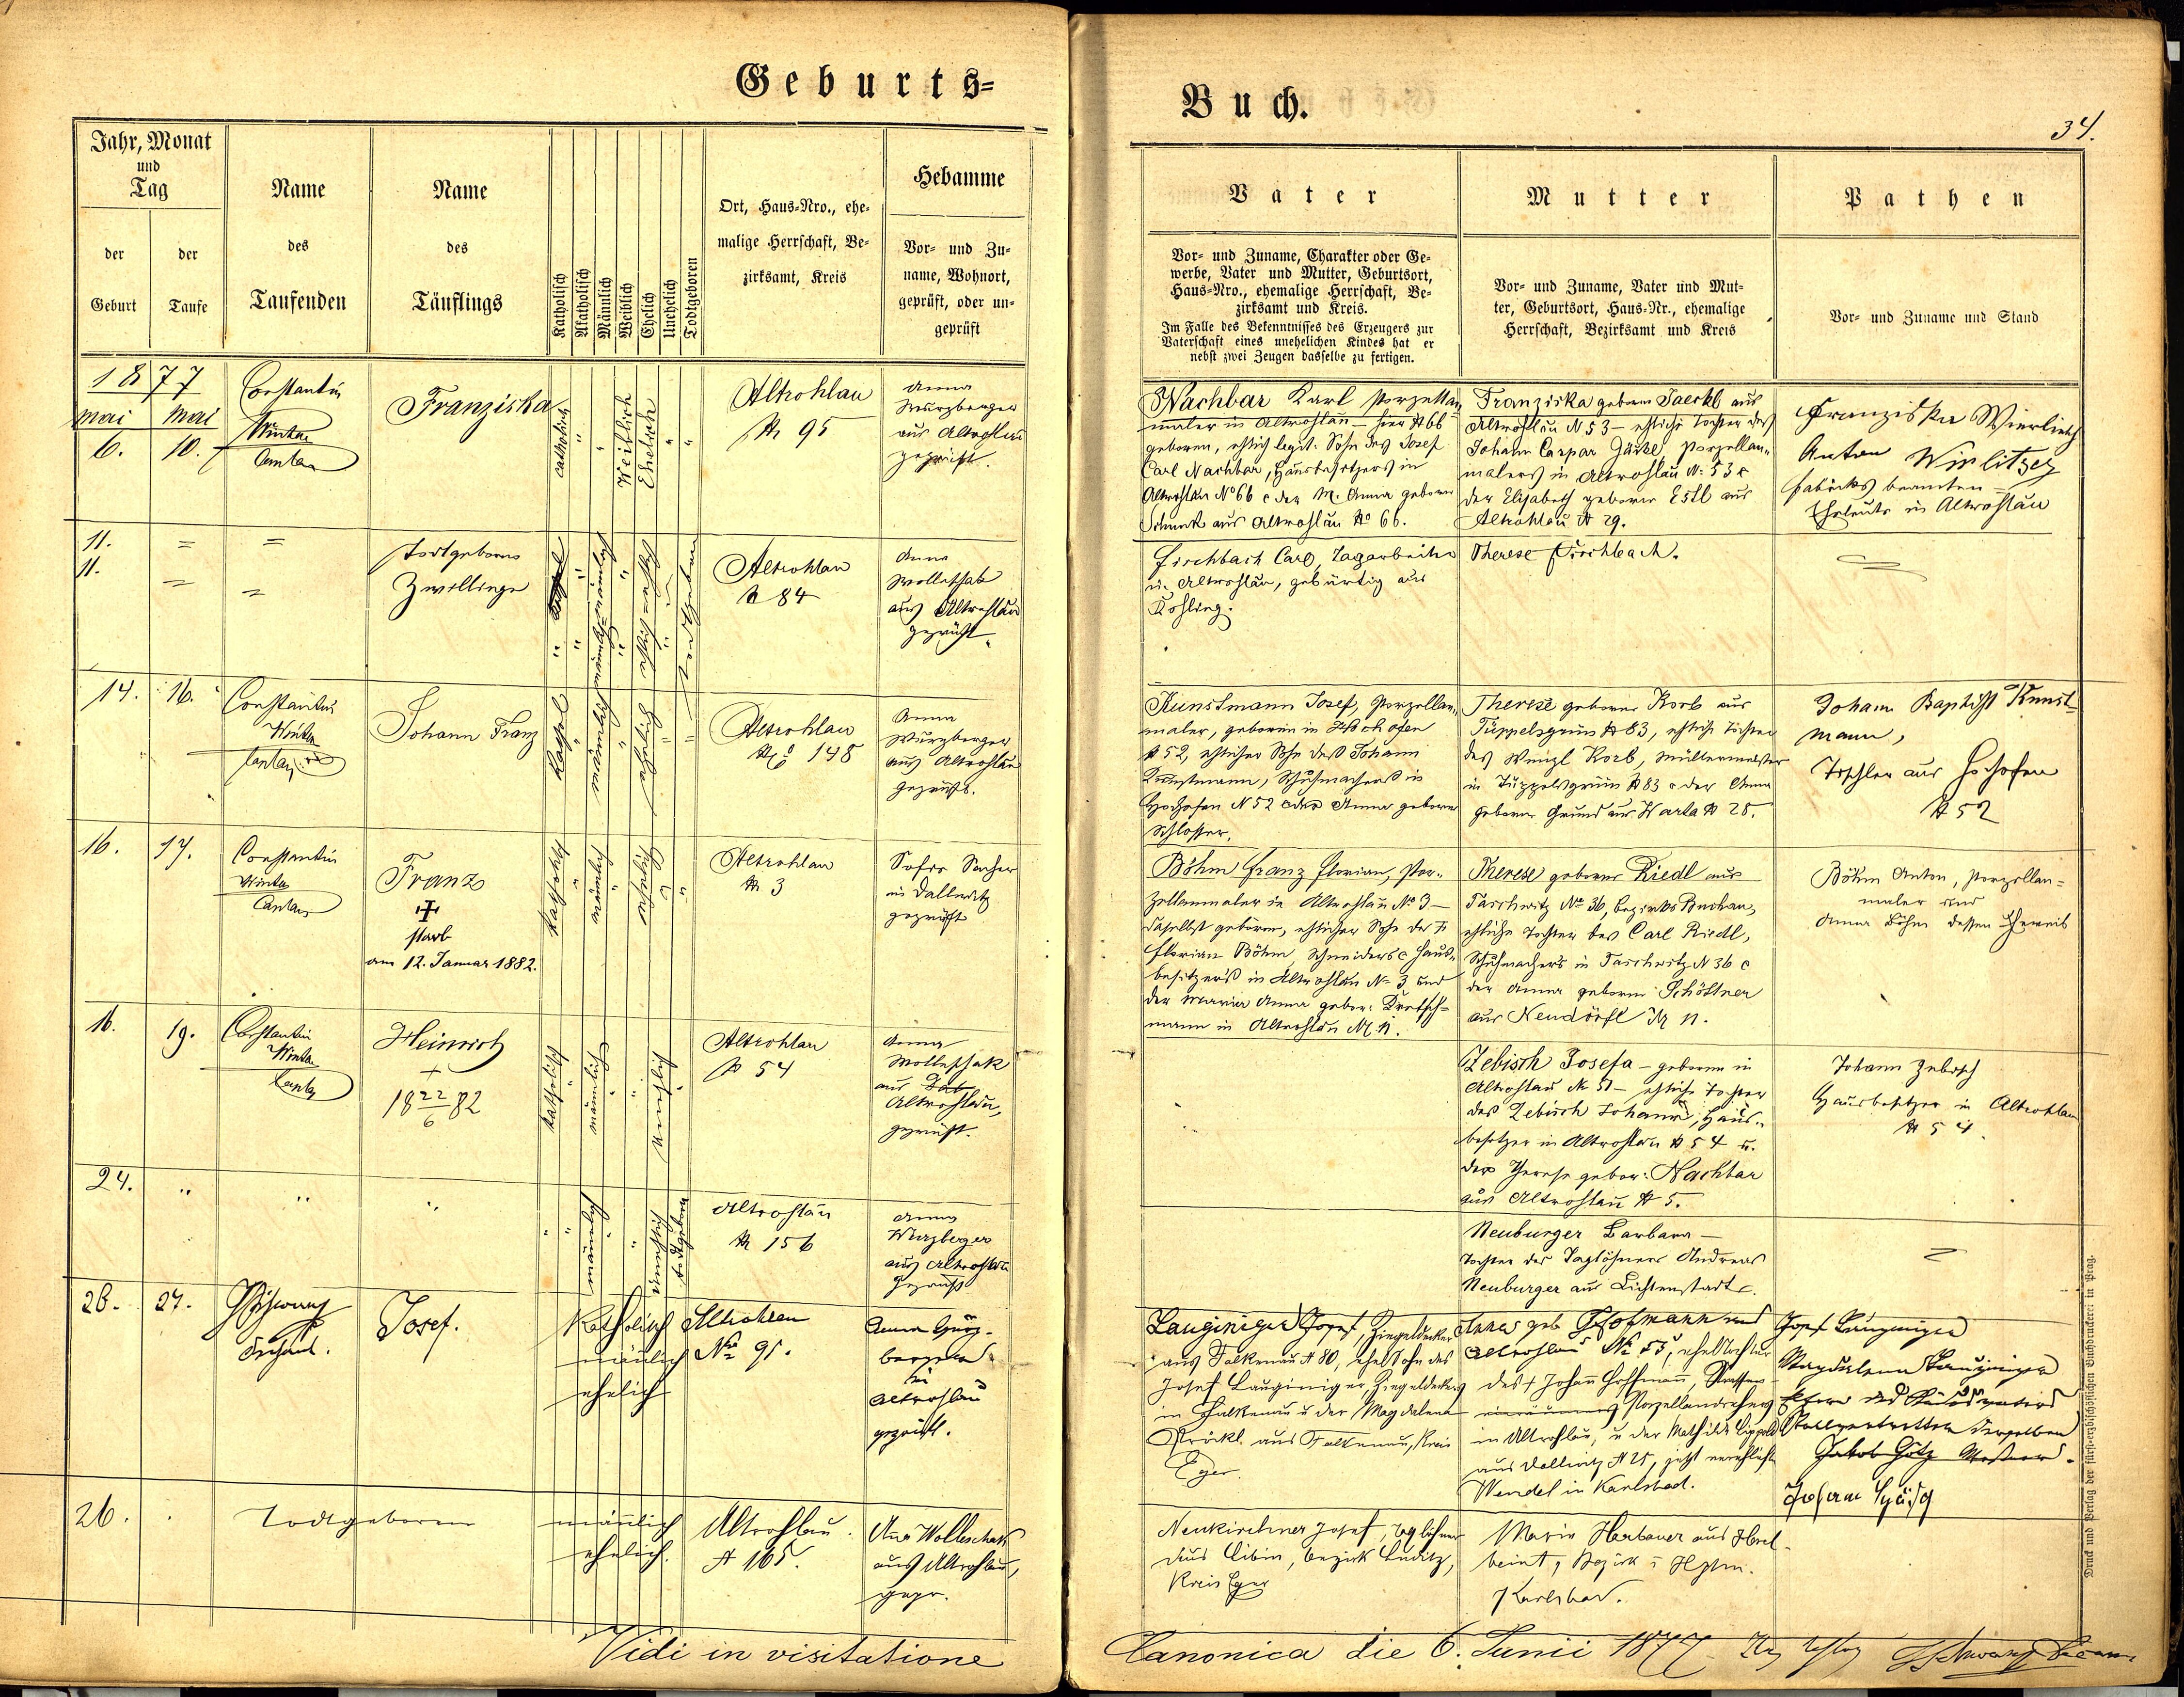 Geburts=
Buch.
34.
Jahr, Monat
und
Tag
der
Geburt
der
Taufe
Name
des
Taufenden
Name
des
Täuflings
Katholisch
Akatholisch
Männlich
Weiblich
Ehelich
Unehelich
Todtgeboren
Ort, Haus=Nro., ehe-
malige Herrschaft, Be-
zirksamt, Kreis
Hebamme
Vor= und Zu-
name, Wohnort,
geprüft, oder un-
geprüft
Vater
Vor= und Zuname, Charakter oder Ge-
werbe, Vater und Mutter, Geburtsort,
Haus=Nro., ehemalige Herrschaft, Be-
zirksamt und Kreis.
Im Falle des Bekenntnisses des Erzeugers zur
Vaterschaft eines unehelichen Kindes hat er
nebst zwei Zeugen dasselbe zu fertigen.
Mutter
Vor= und Zuname, Vater und Mut-
ter, Geburtsort, Haus=Nr., ehemalige
Herrschaft, Bezirksamt und Kreis
Pathen
Vor= und Zuname und Stand
1877
Mai
Mai
6.
10.
Constantin
Winter
Franziska
catholisch
Weiblich
Ehelich
Altrohlau
№ 95
Anna
Wurzberger
aus Altrohlau
geprüft.
Nachbar Karl Porzellan
maler in Altrohlau – hier № 66
geboren, ehlich legit. Sohn des Josef
Carl Nachbar, Hausbesitzers in
Altrohlau № 66 c der M. Anna geborne
aus Altrohlau № 66.
Franziska geborne Jaeckl aus
Altrohlau N 53 – ehliche Tochter des
Johann Caspar Jäckl, Porzellan-
malers in Altrohlau №. 53 c
der Elisabeth geborne Estl aus
Altrohlau № 29.
Franziska
Anton
Fabriksbeamten
Eheleute in Altrohlau
11.
11.
todtgeborne
Zwillinge
Altrohlau
№ 84
Anna
Wolleschak
aus Altrohlau
geprüft.
Fischbach Carl, Tagarbeiter
in Altrohlau, gebürtig aus
Kohling.
Therese Fischbach.
14.
16.
Constantin
Winter
Johann Franz
Altrohlau
№ 148
Anna
Wurzberger
aus Altrohlau
geprüft.
Kunstmann Josef, Porzellan-
maler, geboren in Hochofen
№ 52, ehlicher Sohn des Johann
Kunstmann, Schuhmachers in
Hochofen N 52 c der Anna geborne
Schlosser.
Therese geborne Korb aus
Tüppelsgrün № 83, ehliche Tochter
des Wenzl Korb, Müllermeister
in Tüppelsgrün № 83 c der Anna
geborne Grund aus Warta № 25.
Johann Baptist Kunst-
mann,
Tischler aus Hochofen
№ 52
16.
17.
Constantin
Winter
Franz
starb
am 12. Januar 1882.
Altrohlau
№ 3
Sofie
in Dallwitz
geprüft
Böhm Franz Florian, Por-
zellanmaler in Altrohlau № 3 –
daselbst geboren, ehlicher Sohn des
Florian Böhm, Schneiders c Haus-
besitzer's in Altrohlau № 3 und
der Maria Anna gebor: Dretsch-
mann in Altrohlau № 11.
Therese geborne Riedl aus
Taschwitz № 36, Bezirks Buchau,
ehliche Tochter des Carl Riedl,
Schuhmacher's in Taschwitz N 36 c
der Anna geborne Schöttner
aus Neudörfl № 11.
Böhm Anton, Porzellan-
maler und
Anna Böhm dessen Eheweib
16.
19.
Constantin
Winter
Heinrich
18 22/6 82
katholisch
männlich
unehlich
Altrohlau
№ 54
Anna
Wolleschak
aus
Altrohlau,
geprüft.
Zebisch Josefa – geboren in
Altrohlau № 51 – ehliche Tochter
des Zebisch Johann, Haus-
besitzer in Altrohlau № 54 u.
der Therese gebor: Nachbar
aus Altrohlau № 5.
Johann Zebisch
Hausbesitzer in Altrohlau
№ 54
24.
männlich
unehelich
todtgeboren
Altrohlau
№ 156
Anna
Wurzberger
aus Altrohlau
geprüft
Neuburger Barbara –
Tochter des Taglöhners Andreas
Neuburger aus Lichtenstadt.
26.
27.
Josef.
Katholisch
männlich
ehelich
Altrohlau
№ 91.
Anna
Altrohlau
geprüft.
Lauginiger Josef, Ziegeldecker
aus Falkenau № 80, ehel Sohn des
Josef Lauginiger, Ziegeldeckers
in Falkenau u der Magdalena
aus Falkenau, Kreis
Eger.
Anna geb Hofmann aus
Altrohlau № 55, ehel Tochter
des † Johann Hoffmann,
Porzellandrehers
in Altrohlau, u der Mathilde Lippold
aus Dallwitz № 25, jetzt verehlicht
Wendel in Karlsbad.
Josef Lauginiger
Magdalena Lauginiger
Eltern des Kindsvaters
Stellvertretter derselben
Jakob Götz
26.
Todtgeboren
männlich
ehelich.
Altrohlau
№ 165.
Ana Wolleschak
aus Altrohlau,
gepr.
Neukirchner Josef, Taglöhner
aus Libin, Bezirk Luditz,
Kreis Eger
Maria Harbauer aus
Karlsbad.
Vidi in visitatione
Canonica die 6. Junii 1877
Druck und Verlag der fürst=erzbischöflichen Buchdruckerei in Prag.